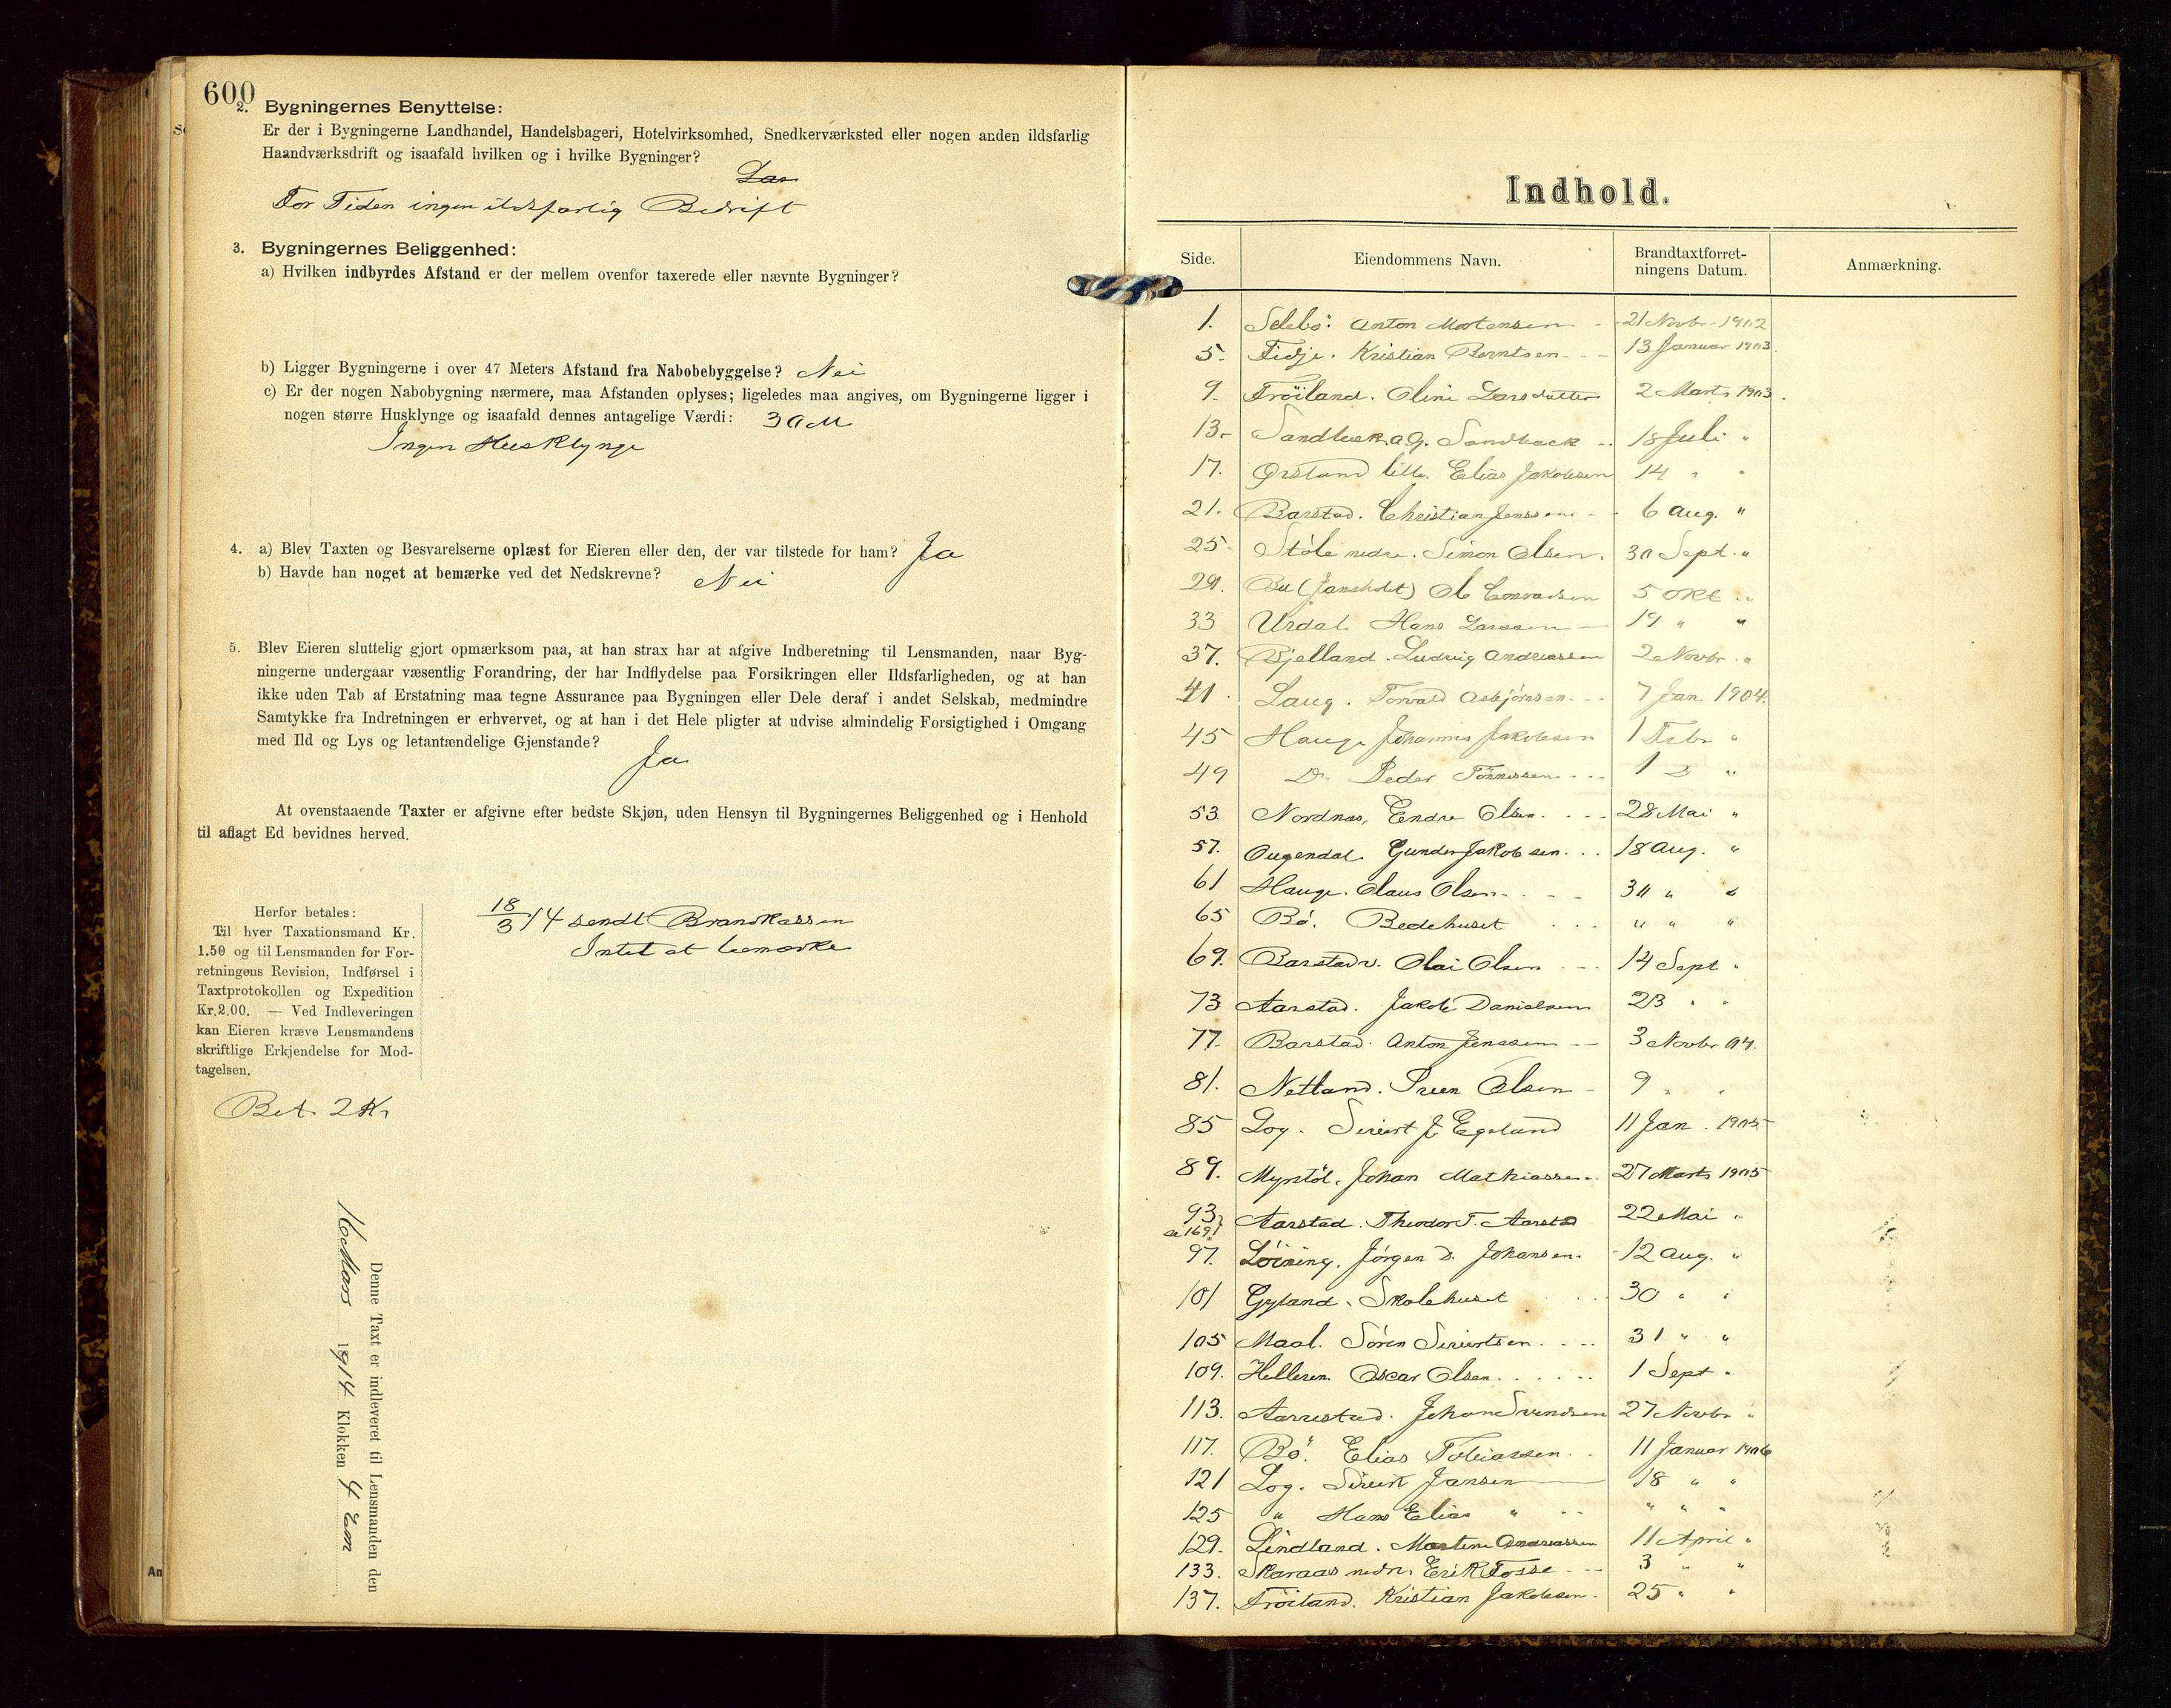 600
2. Bygningernes Benyttelse:
Er der i Bygningerne Landhandel, Handelsbageri, Hotelvirksomhed, Snedkerværksted eller nogen anden ildsfarlig
Haandværksdrift og isaafald hvilken og i hvilke Bygninger?
For Tiden ingen ildsfarlig Bedrift
3. Bygningernes Beliggenhed:
a) Hvilken indbyrdes Afstand er der mellem ovenfor taxerede eller nævnte Bygninger?
b) Ligger Bygningerne i over 47 Meters Afstand fra Nabobebyggelse? Nei
c) Er der nogen Nabobygning nærmere, maa Afstanden oplyses; ligeledes maa angives, om Bygningerne ligger i
nogen større Husklynge og isaafald dennes antagelige Værdi: 30 M
Ingen Husklynge
4. a) Blev Taxten og Besvarelserne oplæst for Eieren eller den, der var tilstede for ham? Ja
b) Havde han noget at bemærke ved det Nedskrevne? Nei
5. Blev Eieren sluttelig gjort opmærksom paa, at han strax har at afgive Indberetning til Lensmanden, naar Byg-
ningerne undergaar væsentlig Forandring, der har Indflydelse paa Forsikringen eller Ildsfarligheden, og at han
ikke uden Tab af Erstatning maa tegne Assurance paa Bygningen eller Dele deraf i andet Selskab, medmindre
Samtykke fra Indretningen er erhvervet, og at han i det Hele pligter at udvise almindelig Forsigtighed i Omgang
med Ild og Lys og letantændelige Gjenstande?
Ja
At ovenstaaende Taxter er afgivne efter bedste Skjøn, uden Hensyn til Bygningernes Beliggenhed og i Henhold
til aflagt Ed bevidnes herved.
Herfor betales:
Til hver Taxationsmand Kr.
1.50 og til Lensmanden for For-
retningens Revision, Indførsel i
Taxtprotokollen og Expedition
Kr. 2.00. — Ved Indleveringen
kan Eieren kræve Lensmandens
skriftlige Erkjendelse for Mod-
tagelsen.
18/3 14 sendt Brandkassen
Intet at bemærke
Bet. 2 Kr
Denne Taxt er indleveret til Lensmanden den
16 Mars 1914 Klokken 4 Em
Indhold.
Side. Eiendommens Navn. Brandtaxtforret-ningens Datum. Anmærkning.
1. Selebö: Anton Mortensen - 21 Novbr 1902
5. Fidje. Kristian Berntsen - - 13 Januar 1903.
9. Fröiland. Oline Larsdatter 2 Marts 1903.
13. Sandbæk. A G. Sandbæck 18 Juli "
17. Ørsland lille. Elias Jakobsen 14 " "
21. Barstad. Christian Jenssen - 6 Aug. "
25. Stöle nedre. Simon Olsen. 30 Sept. "
29. Bu (Jansholt) Ole Conradsen 5 Okt "
33 Urdal. Hans Larssen 19 " "
37. Bjelland. Ludvig Andreassen 2 Novbr "
41. Laug. Torvald Asbjörnsen 7 Jan 1904.
45 Hauge Johannes Jakobsen 1 Febr "
49 Do Peder Tönnessen 1 D "
53 Nordnæs, Endre Olsen. 28 Mai "
57. Ougendal. Gunder Jakobsen. 18 Aug. "
61 Hauge. Olaus Olsen 30 " "
65 Bö. Bedehuset " " "
69. Barstadv. Olai Olsen 14 Sept "
73 Aarstad. Jakob Danielsen 23 " "
77. Barstad. Anton Jenssen 3 Novbr 04.
81. Netland. Olsen 9 " "
85 Log. Sivert J. Egelund 11 Jan. 1905
89. Myrstöl. Johan Mathiassen. 27 Marts 1905
93 Aarstad. Theodor T. Aarstad 22 Mai "
169
97. Löining. Jørgen D. Johansen. 12 Aug. "
101 Gyland. Skolehuset 30 " "
105 Maal. Sören Sivertsen 31 " "
109. Helleren. Oscar Olsen 1 Sept "
113. Aarrestad. Johan Svendsen 27 Novbr "
117. Bö. Elias Tobiassen 11 Januar 1906
121 Log. Sivert Jansen 18 " "
125 " Hans Elias " " " "
129. Lindland. Martin Andreassen 11 April "
133. Skaraas nedre. Erik Fosse 3 " "
137. Fröiland. Kristian Jakobsen. 25 " "